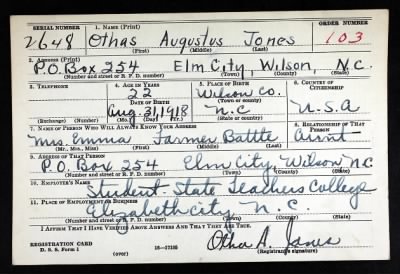 SERIAL NUMBER 1. NAME (Print) ORDER NUMBER
2648 Othas Augustus Jones 103
(First) (Middle) (Last)
2. ADDRESS (Print)
P.O. Box 254 Elm City, Wilson, N.C.
(Number and street or R. F. D. number) (Town) (County) (State)
3. TELEPHONE 4. AGE IN YEARS 5. PLACE OF BIRTH 6. COUNTRY OF CITIZENSHIP
22 Wilson Co.
DATE OF BIRTH (Town or county)
Aug. 31, 1918 N.C U.S.A
(Exchange) (Number) (Mo.) (Day) (Yr.) (State or country)
7. NAME OF PERSON WHO WILL ALWAYS KNOW YOUR ADDRESS 8. RELATIONSHIP OF THAT PERSON
Mrs. Emma Farmer Battle Aunt
(Mr., Mrs., Miss) (First) (Middle) (Last)
9. ADDRESS OF THAT PERSON
P.O. Box 254 Elm City, Wilson N.C
(Number and street or R. F. D. number) (Town) (County) (State)
10. EMPLOYER'S NAME
Student-State Teachers College
11. PLACE OF EMPLOYMENT OR BUSINESS
Elizabeth City N.C.
(Number and street or R. F. D. number) (Town) (County) (State)
I AFFIRM THAT I HAVE VERIFIED ABOVE ANSWERS AND THAT THEY ARE TRUE.
REGISTRATION CARD Otha A. Jones
D. S. S. Form 1 (over) 16—17105 (Registrant's signature)